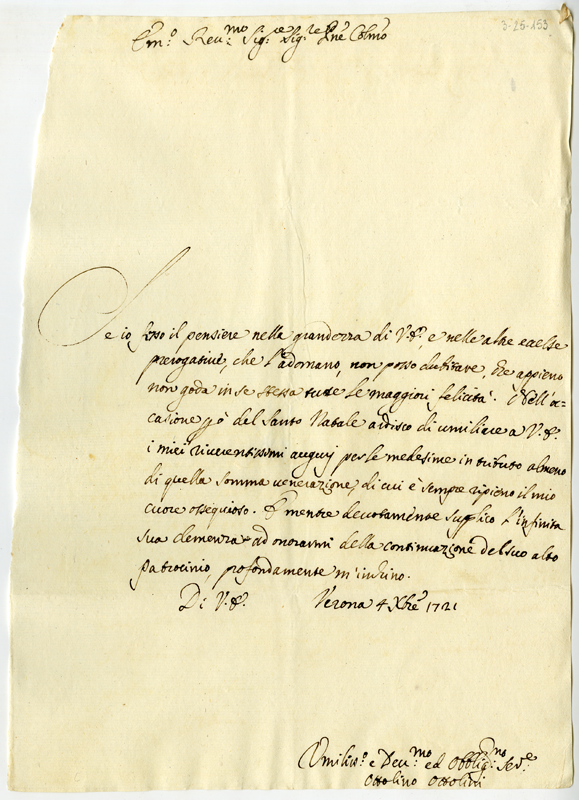 3-25-153
Em.o Rev.mo Sig.re Sig.re Pne Colmo
Se io fisso il pensiere nella grandezza di V.E. e nelle altre eccelse
prerogative, che l'adornano, non posso dubitare, che appieno
non goda in se stessa tutte le maggiori felicità. Coll'oc=
casione pò del Santo Natale ardisco di umiliare a V.E.
i miei riverentissimi augurj per le medesime in tributo almeno
di quella somma venerazione, di cui è sempre ripieno il mio
cuore ossequioso. E mentre devotamente supplico l'infinita
sua clemenza ad onorarmi della continuazione del suo alto
Patrocinio, profondamente m'inchino.
Di V.E. Verona 4 Xbre 1721
Umiliss.o e Dev.mo ed Obblig.mo Ser.e
Ottolino Ottolini